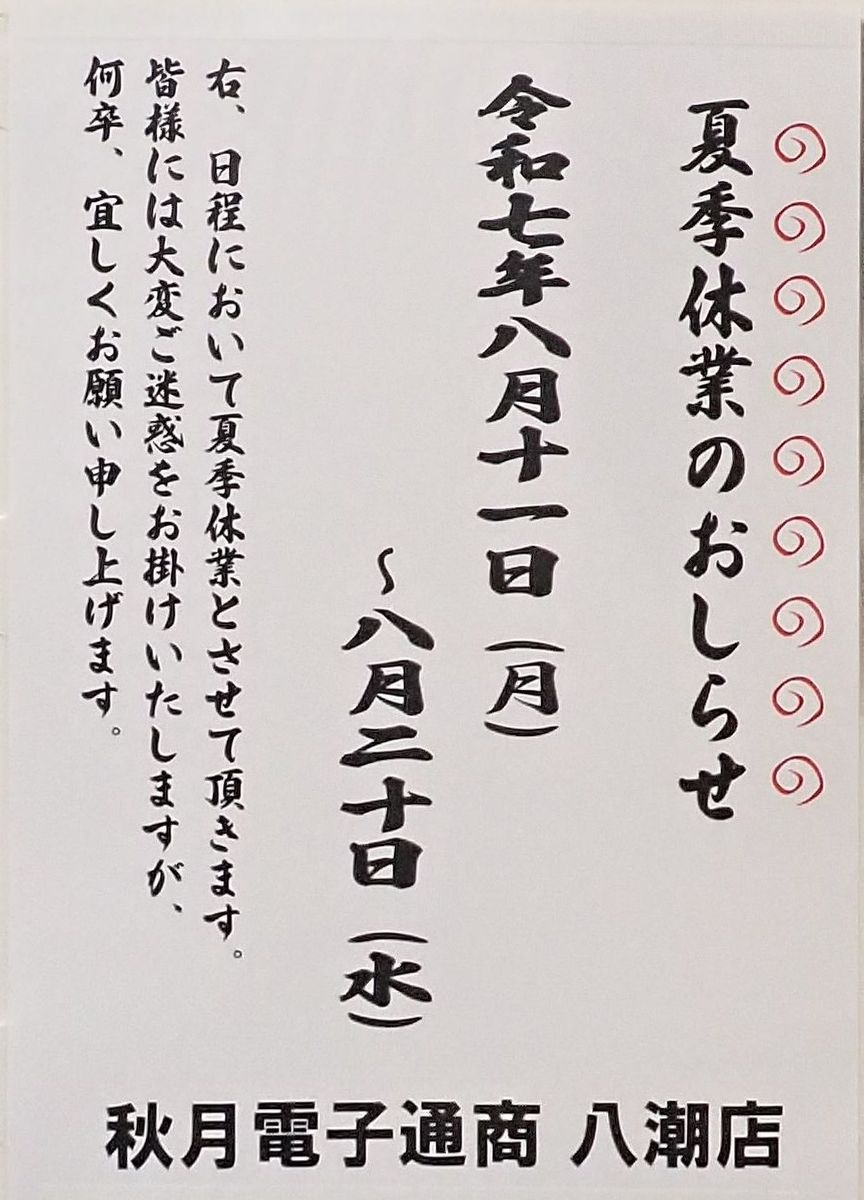 夏季休業のおしらせ
令和七年八月十一日(月)
〜八月二十日(水)
右、日程において夏季休業とさせて頂きます。
皆様には大変ご迷惑をお掛けいたしますが、
何卒、宜しくお願い申し上げます。
秋月電子通商 八潮店